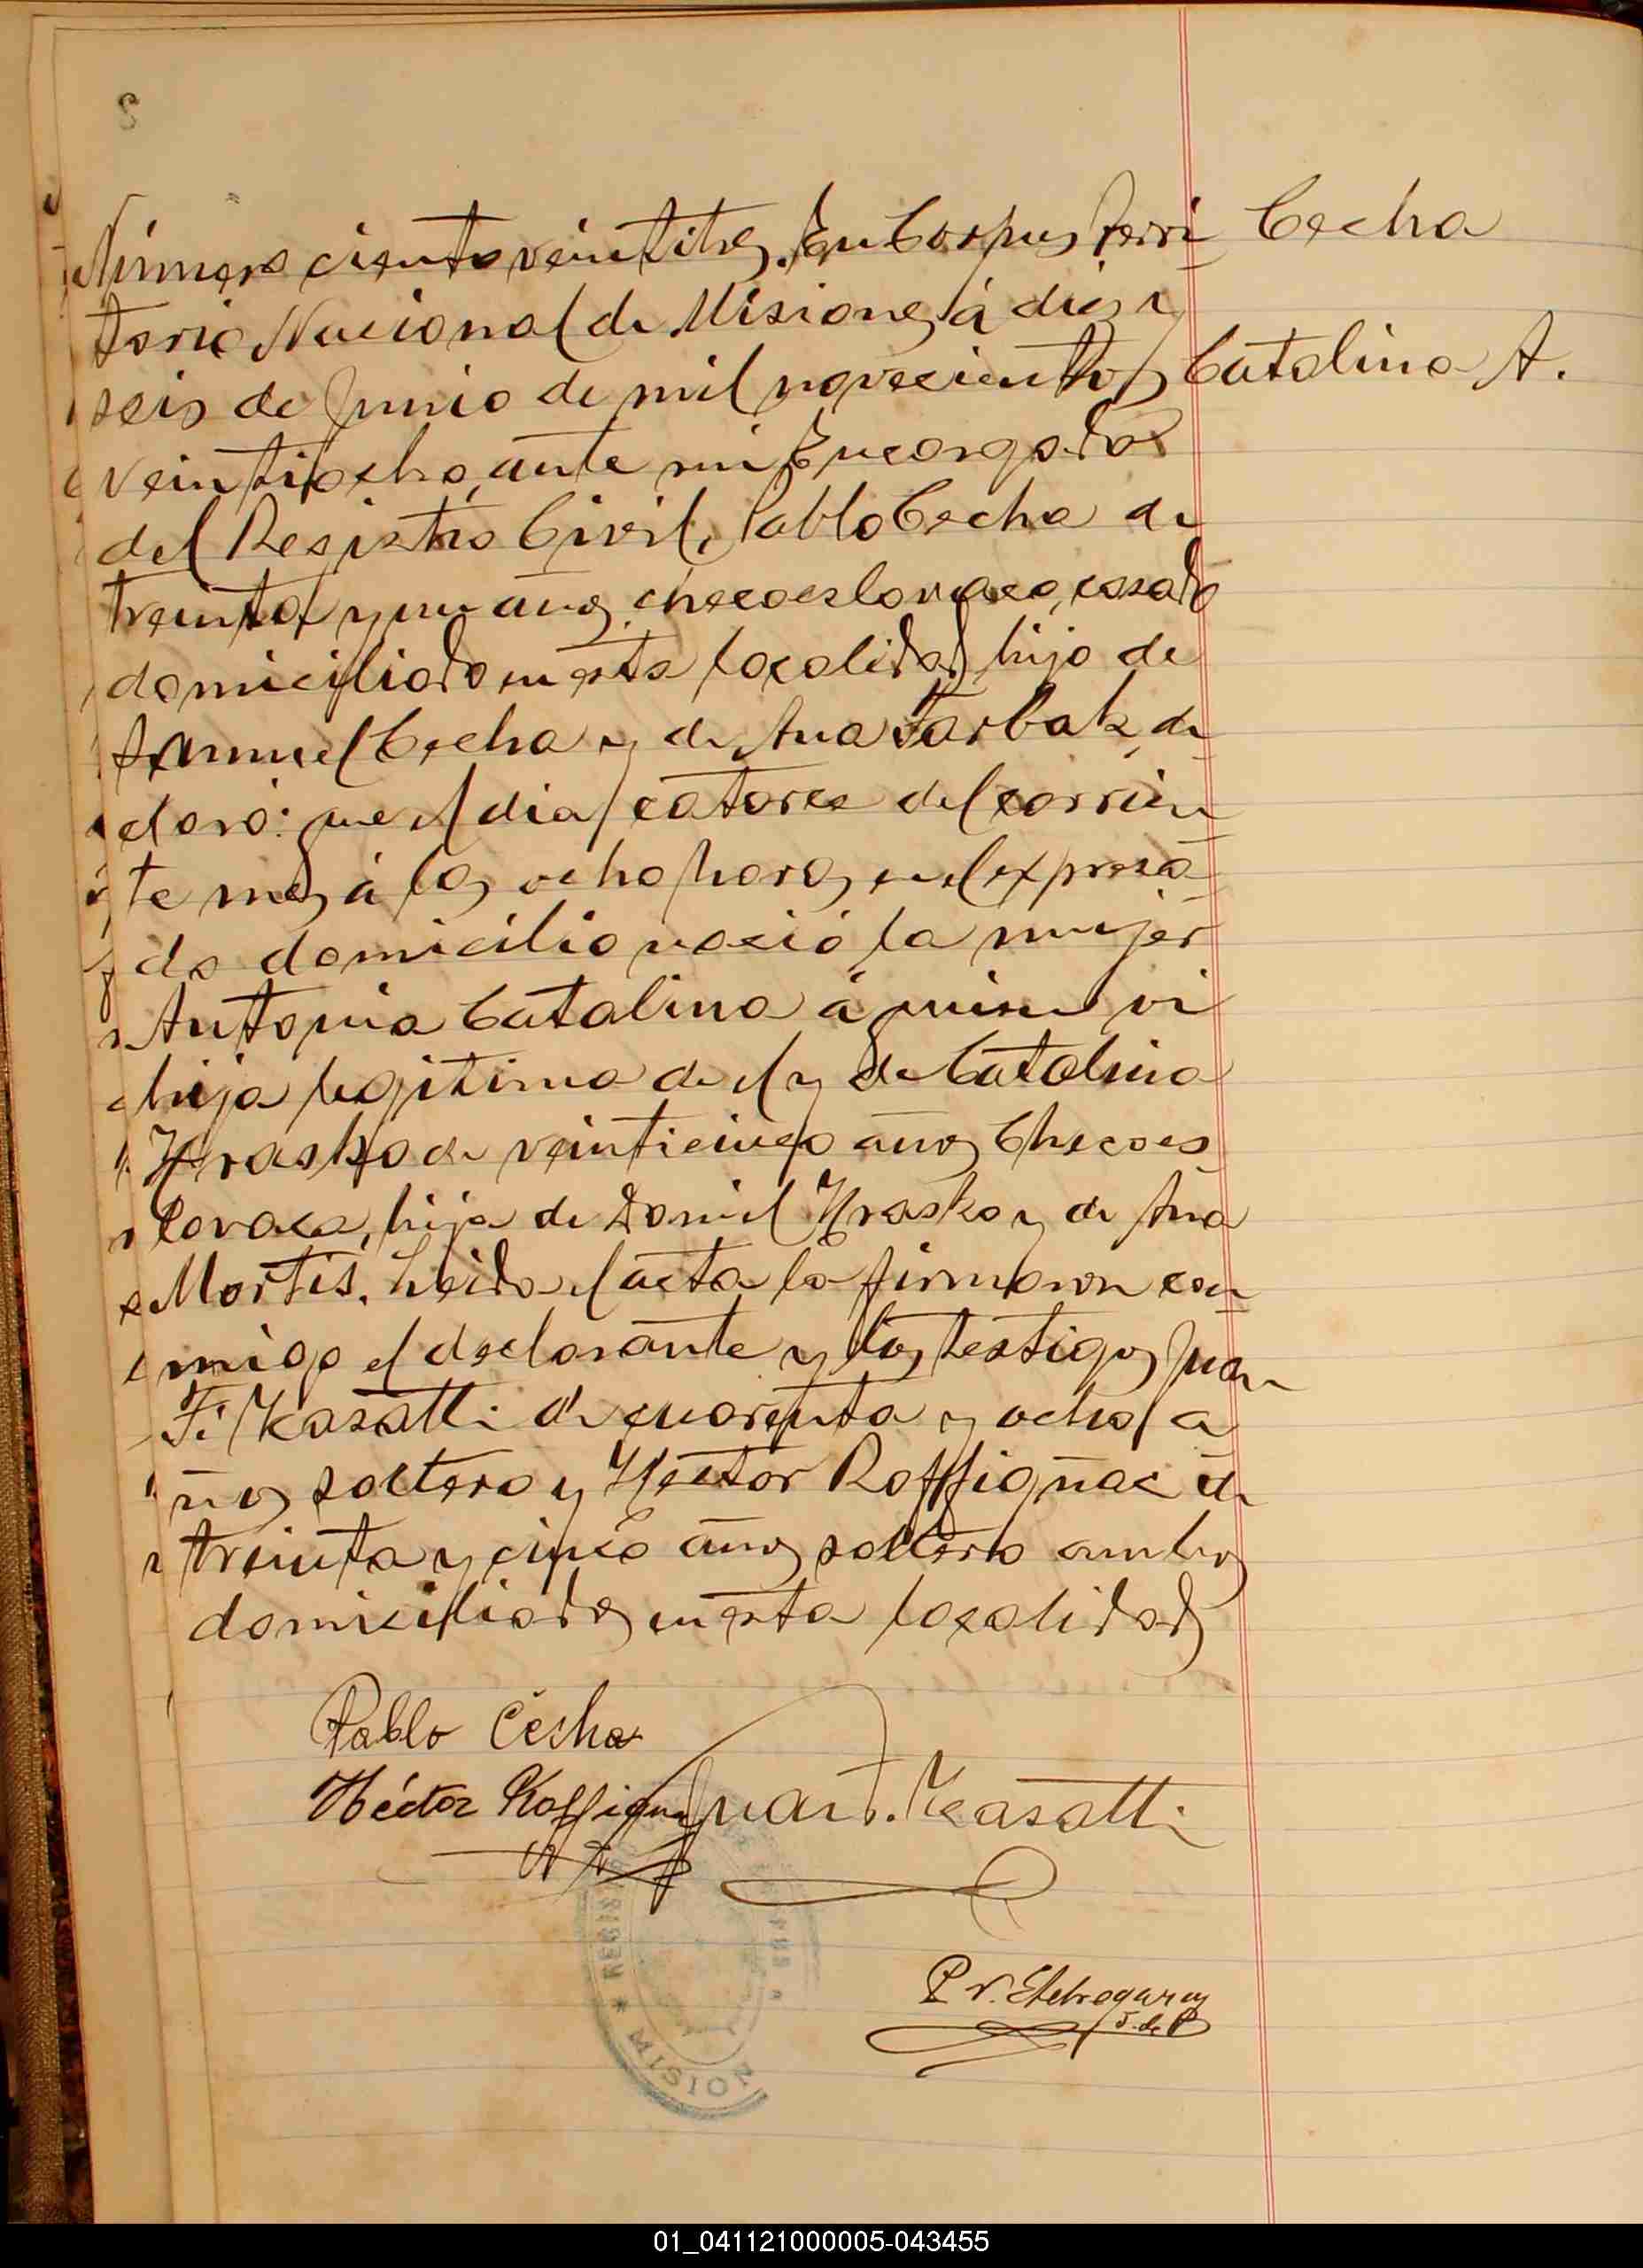 2
Cecha
Catalina A.
Número ciento veintitres. En Corpus Terri-
torio Nacional de Misiones á diez y
seis de Junio de mil novecientos
veintiocho, ante mi Encargado
del Registro Civil, Pablo Cecha de
treinta y un años, checoeslovaco, casado
domiciliado en esta localidad hijo de
Samuel Cecha y de Ana Tarbak, de
claró: que el dia catorce del corrien-
te mes á las ocho horas en el expresa-
do domicilio nació la mujer
Antonia Catalina á quien vi
hija legitima de el y de Catalina
Hrasko de veinticinco años Checoes
lovaca, hija de Daniel Hrasko y de Ana
Mortis. Leida el acta la firmaron con-
migo el declarante y los testigos Juan
F. Kasatti de cuarenta y ocho a
ños soltero y Héctor Roffignac de
treinta y cinco años soltero ambos
domiciliados en esta localidad
Pablo Čecha
Héctor Roffignac Juan F. Kasatti
P V. Etchegaray
J. de P
REGIS
MISION
01_041121000005-043455